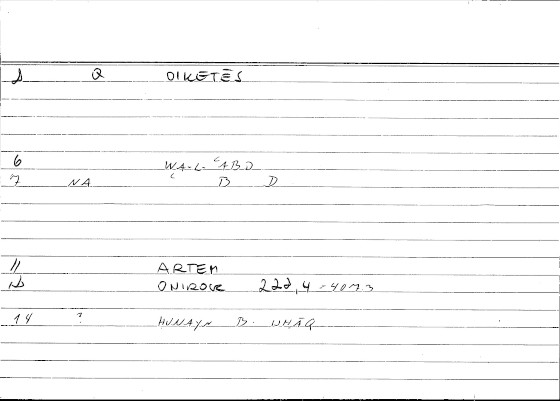 Q OIKETĒS
6 WA-L-ʿABD
7 NA ʿ B D
11 ARTEM
ONIROCR 222,4
14 ? HUNAYN B.